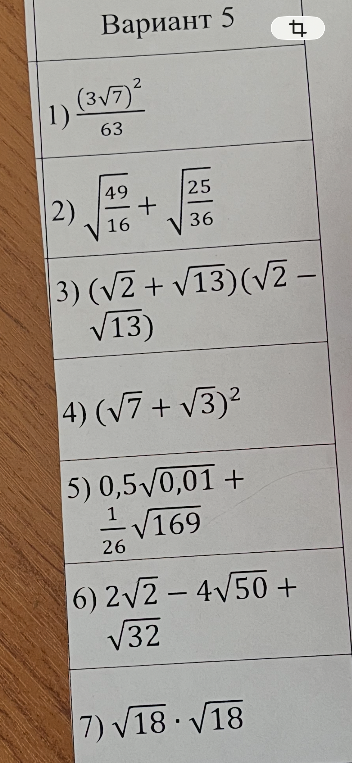 Вариант 5
1) (3√7)²/63
2) √(49/16) + √(25/36)
3) (√2 + √13)(√2 −
√13)
4) (√7 + √3)²
5) 0,5√0,01 +
1/26 √169
6) 2√2 − 4√50 +
√32
7) √18 · √18